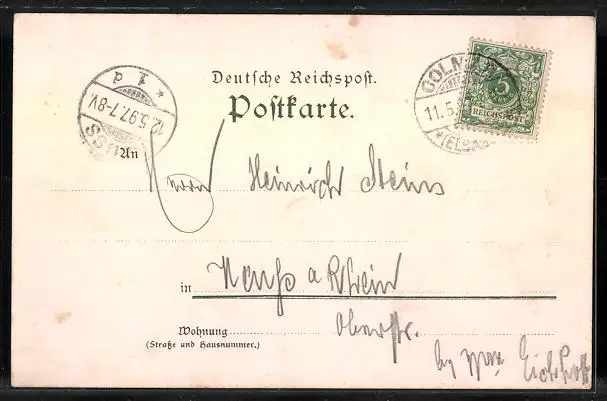 Deutsche Reichspost.
Postkarte.
COLMAR
11.5.
(ELSASS)
5
REICHSPOST
12.5.97.7-8V.
An
Herrn Heinrich Steins
in Neuss a Rhein
Wohnung Oberstr.
(Straße und Hausnummer.)